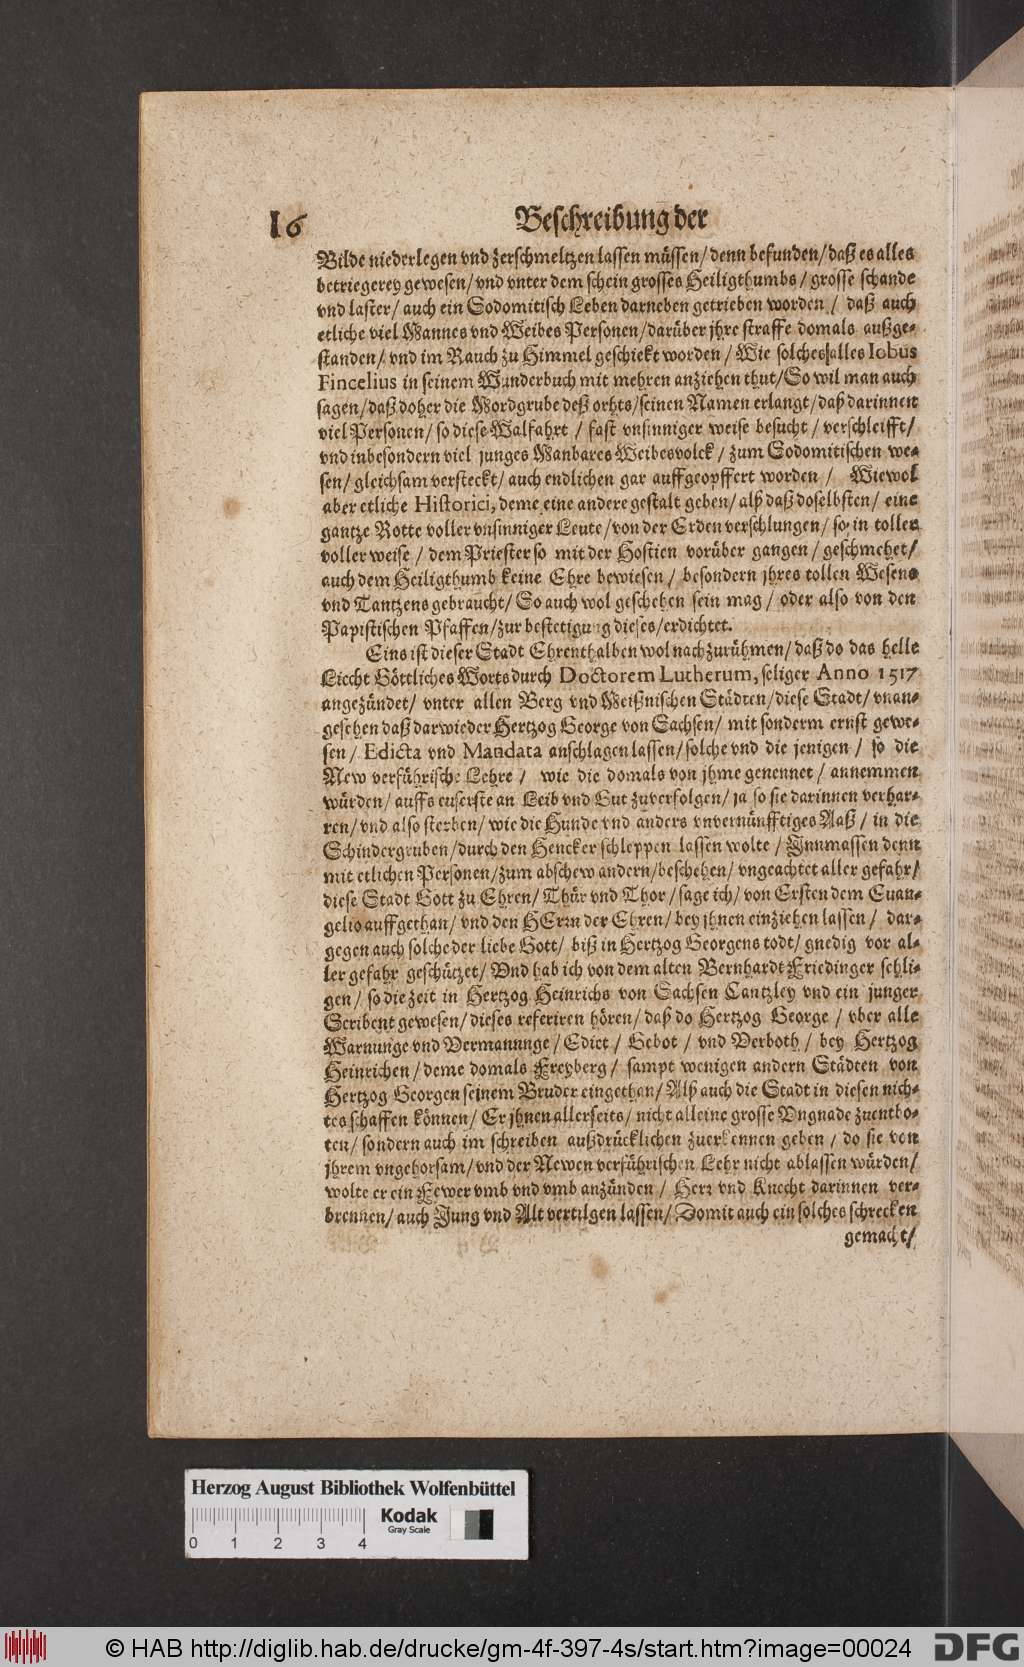 16
Beschreibung der
Bilde niederlegen vnd zerschmeltzen lassen müssen/ denn befunden/ daß es alles
betriegerey gewesen/ vnd vnter dem schein grosses Heiligthumbs/ grosse schande
vnd laster/ auch ein Sodomitisch Leben darneben getrieben worden/ daß auch
etliche viel Mannes vnd Weibes Personen/ darüber jhre straffe domals außge-
standen/ vnd im Rauch zu Himmel geschickt worden/ Wie solches alles Iobus
Fincelius in seinem Wunderbuch mit mehren anziehen thut/ So wil man auch
sagen/ daß doher die Mordgrube deß orhts/ seinen Namen erlangt/ daß darinnen
viel Personen/ so diese Walfahrt/ fast vnsinniger weise besucht/ verschleifft/
vnd inbesondern viel junges Manbares Weibesvolck/ zum Sodomitischen we-
sen/ gleichsam versteckt/ auch endlichen gar auffgeopffert worden/ Wiewol
aber etliche Historici, deme eine andere gestalt geben/ alß daß doselbsten/ eine
gantze Rotte voller vnsinniger Leute/ von der Erden verschlungen/ so in toller
voller weise/ dem Priester so mit der Hostien vorüber gangen/ geschmehet/
auch dem Heiligthumb keine Ehre bewiesen/ besondern jhres tollen Wesens
vnd Tantzens gebraucht/ So auch wol geschehen sein mag/ oder also von den
Papistischen Pfaffen/ zur bestetigung dieses/ erdichtet.
Eins ist dieser Stadt Ehrenthalben wol nachzurühmen/ daß do das helle
Liecht Göttliches Worts durch Doctorem Lutherum, seliger Anno 1517
angezündet/ vnter allen Berg vnd Meißnischen Städten/ diese Stadt/ vnan-
gesehen daß darwieder Hertzog George von Sachsen/ mit sonderm ernst gewe-
sen/ Edicta vnd Mandata anschlagen lassen/ solche vnd die jenigen/ so die
New verführische Lehre/ wie die domals von jhme genennet/ annemmen
würden/ auffs euserste an Leib vnd Gut zuverfolgen/ ja so sie darinnen verhar-
ren/ vnd also sterben/ wie die Hunde vnd anders vnvernünfftiges Aaß/ in die
Schindergruben/ durch den Hencker schleppen lassen wolte/ Jnnmassen denn
mit etlichen Personen/ zum abschew andern/ beschehen/ vngeachtet aller gefahr/
diese Stadt Gott zu Ehren/ Thür vnd Thor/ sage ich/ von Ersten dem Euan-
gelio auffgethan/ vnd den HErrn der Ehren/ bey jhnen einziehen lassen/ dar-
gegen auch solche der liebe Gott/ biß in Hertzog Georgens todt/ gnedig vor al-
ler gefahr geschützet/ Vnd hab ich von dem alten Bernhardt Friedinger sehli-
gen/ so die zeit in Hertzog Heinrichs von Sachsen Cantzley vnd ein junger
Scribent gewesen/ dieses referiren hören/ daß do Hertzog George/ vber alle
Warnunge vnd Vermannnge/ Edict/ Gebot/ vnd Verboth/ bey Hertzog
Heinrichen/ deme domals Freyberg/ sampt wenigen andern Städten von
Hertzog Georgen seinem Bruder eingethan/ Alß auch die Stadt in diesen nich-
tes schaffen können/ Er jhnen allerseits/ nicht alleine grosse Vngnade zuentbo-
ten/ sondern auch im schreiben außdrücklichen zuerkennen geben/ do sie von
jhrem vngehorsam/ vnd der Newen verführischen Lehr nicht ablassen würden/
wolte er ein Fewer vmb vnd vmb anzünden/ Herr vnd Knecht darinnen ver-
brennen/ auch Jung vnd Alt vertilgen lassen/ Domit auch ein solches schrecken
gemacht/
Herzog August Bibliothek Wolfenbüttel
Kodak
Gray Scale
0 1 2 3 4
© HAB http://diglib.hab.de/drucke/gm-4f-397-4s/start.htm?image=00024
DFG